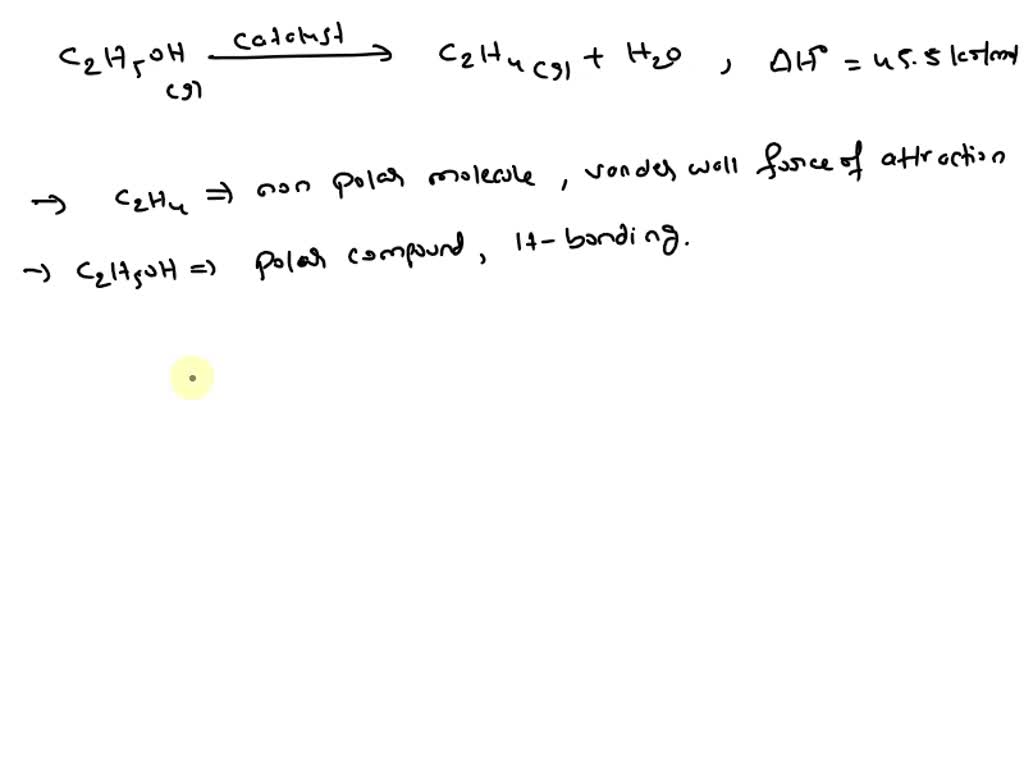 C2H5OH (g) catalyst → C2H4 (g) + H2O , ΔH° = 45.5 kJ/mol
→ C2H4 ⇒ non polar molecule, vander wall force of attraction
→ C2H5OH ⇒ polar compound, H-bonding.